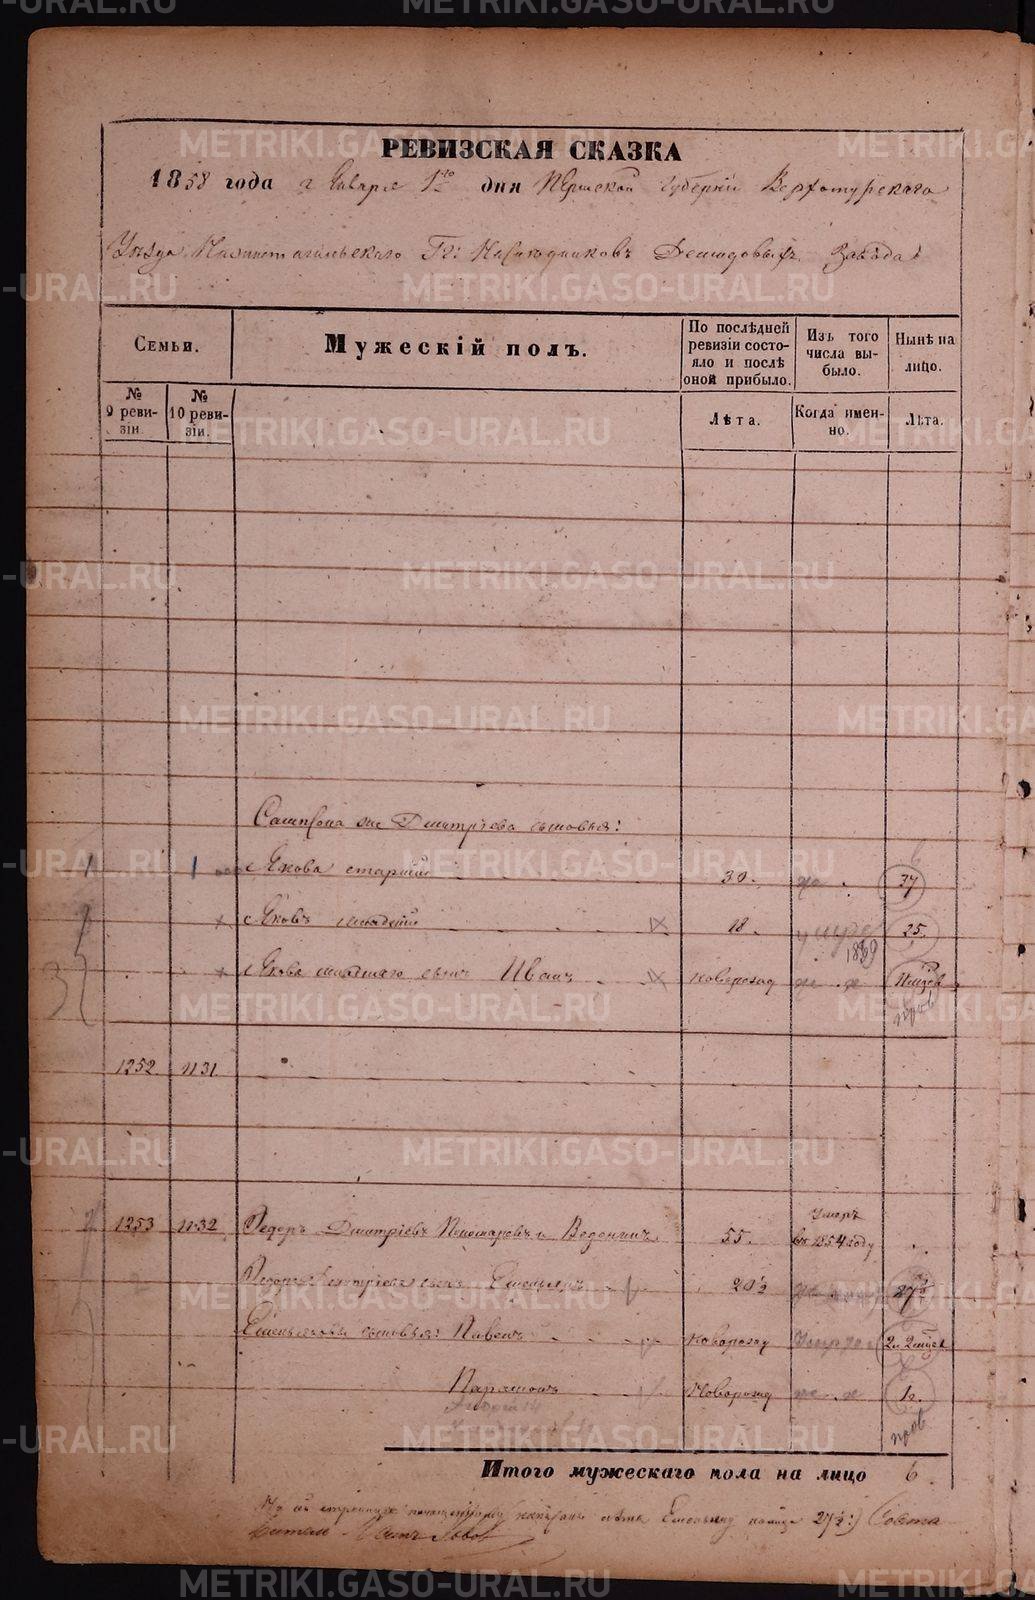 РЕВИЗСКАЯ СКАЗКА
1858 года Января 1го дня Пермской Губернiи Верхотурского
Уѣзда Нижнетагильскаго Гг: Наслѣдниковъ Демидовыхъ Завода
Семьи.
Мужескій полъ.
По послѣдней ревизіи состояло и послѣ оной прибыло.
Изъ того числа выбыло.
Нынѣ на лицо.
№ 9 ревизіи.
№ 10 ревизіи.
Лѣта.
Когда именно.
Лѣта.
Сампсона же Дмитріева сыновья:
1 1 Якова старшій 30. 37
Яковъ младшій 18. 25.
1869
3 Якова младшаго сынъ Иванъ новорожд
1252. 1131.
1253 1132 Федоръ Дмитріевъ Пономаревъ и Веденинъ 55. Умеръ въ 1854 году
Федора Дмитріева сынъ Емельянъ 20½ 27½
Емельяновы сыновья: Павелъ новорожд
Парамонъ Новорожд 1г.
пров
Итого мужескаго пола на лицо 6.
лѣта Емельяну 27½:)
METRIKI.GASO-URAL.RU